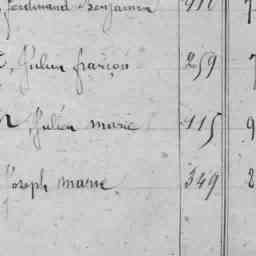 ferdinand Benjamin
Julien françois 259 7
Julien marie 115 9
Joseph marie 349 2